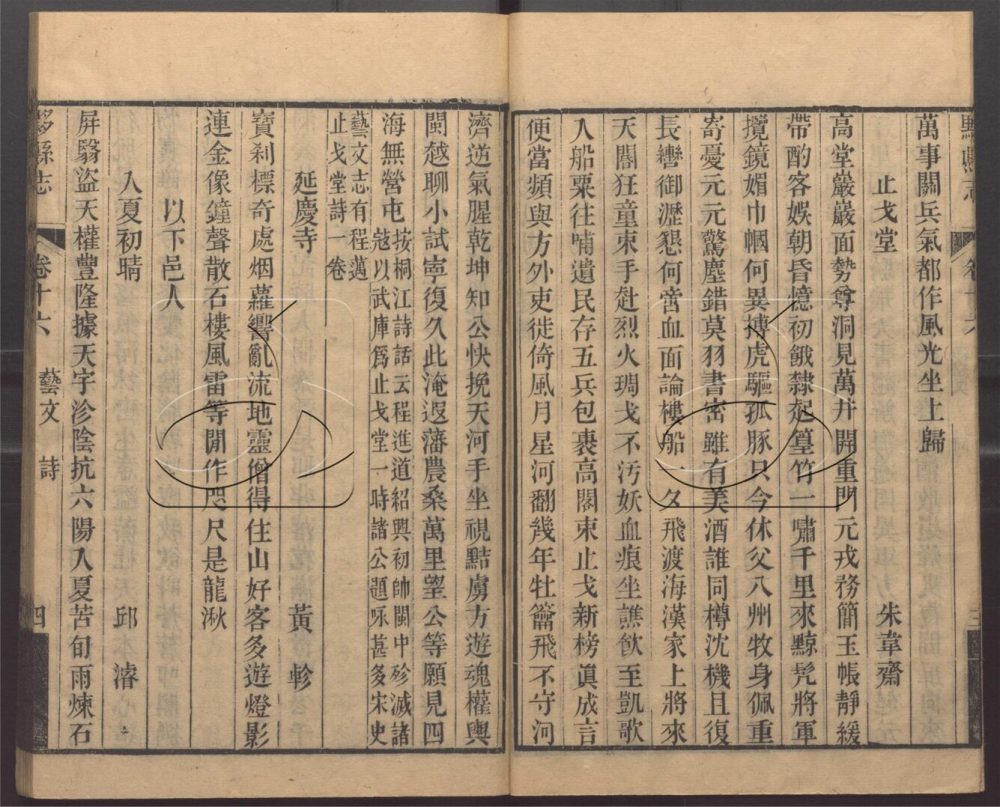 黟縣志
卷十六
萬事關兵氣都作風光坐上歸
止戈堂
朱韋齋
高堂巖巖面勢尊洞見萬井開重門元戎務簡玉帳靜緩
帶酌客娛朝昏憶初餓隸起篁竹一嘯千里來黥髡將軍
攬鏡媚巾幗何異搏虎驅孤豚只今休父八州牧身佩重
寄憂元元驚塵錯莫羽書密雖有美酒誰同樽沈機且復
長轡御瀝懇何啻血面論樓船一夕飛渡海漢家上將來
天閽狂童束手赴烈火琱戈不汚妖血痕坐譙飲至凱歌
入船粟往哺遺民存五兵包裹高閣束止戈新榜眞成言
便當頻與方外吏徙倚風月星河翻幾年牡籥飛不守河
濟逆氣腥乾坤知公快挽天河手坐視黠虜方遊魂權輿
閩越聊小試寧復久此淹返藩農桑萬里望公等願見四
海無營屯按桐江詩話云程進道紹興初帥閩中殄滅諸
寇以武庫爲止戈堂一時諸公題咏甚多宋史
藝文志有程邁
止戈堂詩一卷
延慶寺
黃軫
寶刹標奇處烟蘿響亂流地靈僧得住山好客多遊燈影
連金像鐘聲散石樓風雷等閒作咫尺是龍湫
以下邑人
入夏初晴
邱濬
屛翳盜天權豐隆據天宇沴陰抗六陽入夏苦旬雨煉石
黟縣志
卷十六
藝文
詩
四